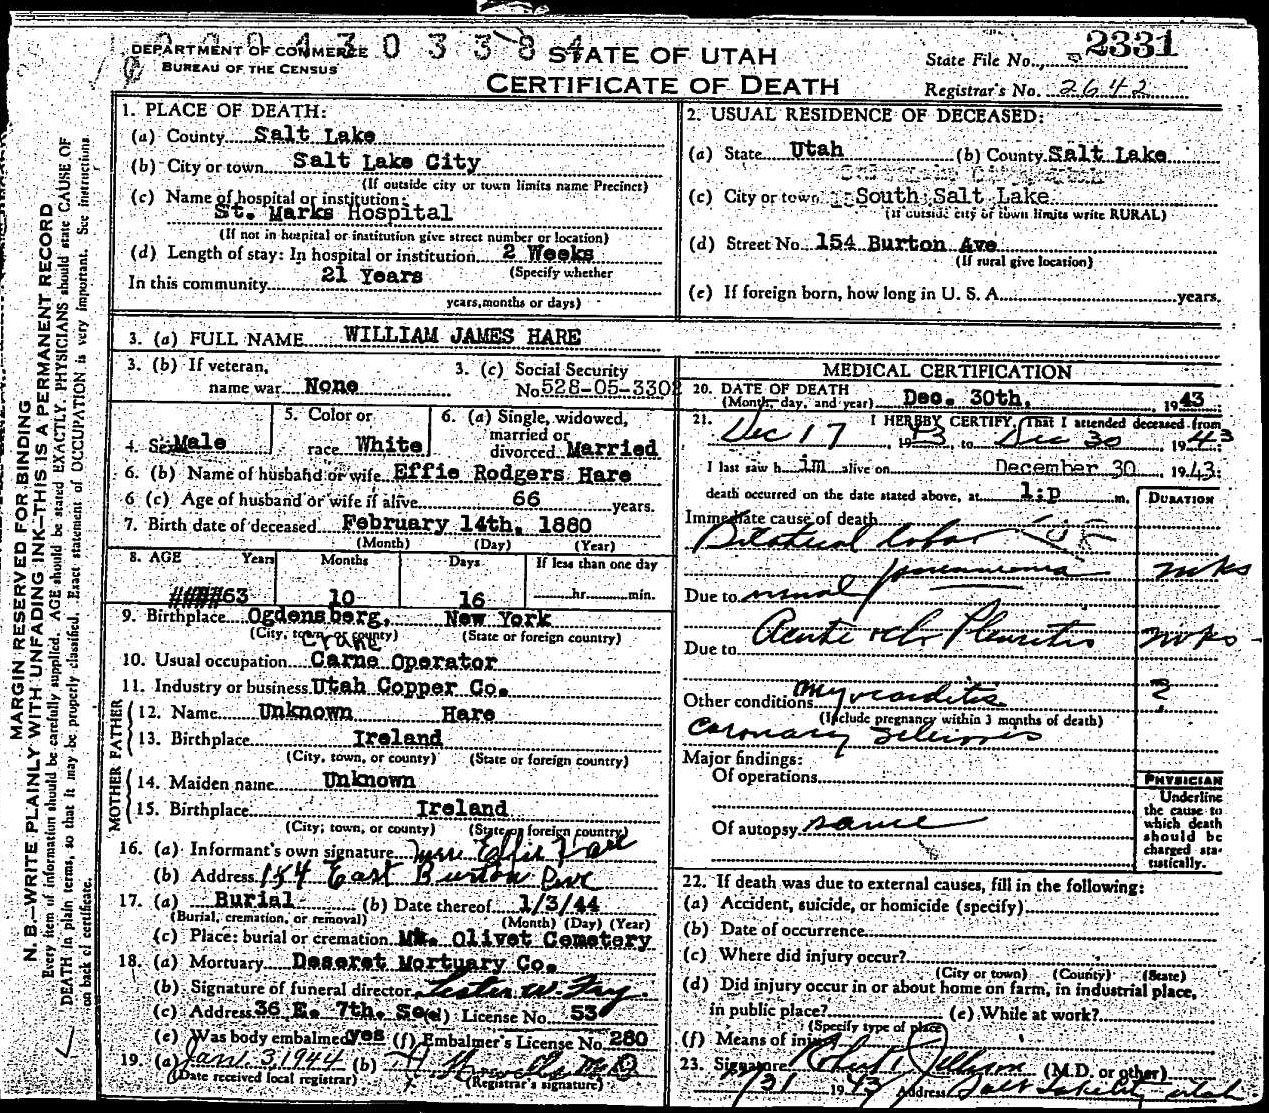 0004303384
DEPARTMENT OF COMMERCE
BUREAU OF THE CENSUS
STATE OF UTAH
CERTIFICATE OF DEATH
State File No. 2331
Registrar's No. 2642
MARGIN RESERVED FOR BINDING
N. B.—WRITE PLAINLY WITH UNFADING INK—THIS IS A PERMANENT RECORD
Every item of information should be carefully supplied. AGE should be stated EXACTLY. PHYSICIANS should state CAUSE OF
DEATH in plain terms, so that it may be properly classified. Exact statement of OCCUPATION is very important. See instructions
on back of certificate.
1. PLACE OF DEATH:
(a) County Salt Lake
(b) City or town Salt Lake City
(If outside city or town limits name Precinct)
(c) Name of hospital or institution:
St. Marks Hospital
(If not in hospital or institution give street number or location)
(d) Length of stay: In hospital or institution 2 Weeks
(Specify whether
In this community 21 Years
years, months or days)
2. USUAL RESIDENCE OF DECEASED:
(a) State Utah (b) County Salt Lake
(c) City or town South Salt Lake
(If outside city or town limits write RURAL)
(d) Street No. 154 Burton Ave
(If rural give location)
(e) If foreign born, how long in U. S. A. years.
3. (a) FULL NAME WILLIAM JAMES HARE
3. (b) If veteran,
name war None
3. (c) Social Security
No. 528-05-3302
4. Sex Male
5. Color or
race White
6. (a) Single, widowed,
married or
divorced Married
6. (b) Name of husband or wife Effie Rodgers Hare
6 (c) Age of husband or wife if alive 66 years.
7. Birth date of deceased February 14th, 1880
(Month) (Day) (Year)
8. AGE Years Months Days If less than one day
63 10 16 hr. min.
9. Birthplace Ogdensberg, New York
(City, town, or county) (State or foreign country)
Crane
10. Usual occupation Carne Operator
11. Industry or business Utah Copper Co.
FATHER
12. Name Unknown Hare
13. Birthplace Ireland
(City, town, or county) (State or foreign country)
MOTHER
14. Maiden name Unknown
15. Birthplace Ireland
(City, town, or county) (State or foreign country)
16. (a) Informant's own signature Mrs Effie Hare
(b) Address 154 East Burton Ave
17. (a) Burial (b) Date thereof 1/3/44
(Burial, cremation, or removal) (Month) (Day) (Year)
(c) Place: burial or cremation Mt. Olivet Cemetery
18. (a) Mortuary Deseret Mortuary Co.
(b) Signature of funeral director Lester W. Fry
(c) Address 36 E. 7th. So. (d) License No. 530
(e) Was body embalmed yes (f) Embalmer's License No. 280
19. (a) Jan. 3, 1944 (b)
(Date received local registrar) (Registrar's signature)
MEDICAL CERTIFICATION
20. DATE OF DEATH
(Month, day, and year) Dec. 30th. 1943
21. I HEREBY CERTIFY, That I attended deceased from
Dec 17 1943 to Dec 30 1943
I last saw him alive on December 30 1943:
death occurred on the date stated above, at 1:p m.
DURATION
Immediate cause of death
Bilateral lobar 108
pneumonia wks
Due to usual
Acute rt Pleuritis wks
Due to
Other conditions myocarditis ?
(Include pregnancy within 3 months of death)
coronary Sclerosis
Major findings:
Of operations
Of autopsy same
PHYSICIAN
Underline
the cause to
which death
should be
charged sta-
tistically.
22. If death was due to external causes, fill in the following:
(a) Accident, suicide, or homicide (specify)
(b) Date of occurrence
(c) Where did injury occur?
(City or town) (County) (State)
(d) Did injury occur in or about home on farm, in industrial place,
in public place? (e) While at work?
(Specify type of place)
(f) Means of injury
23. Signature Robert Jellison (M.D. or other)
12/31 1943 Address Salt Lake City Utah